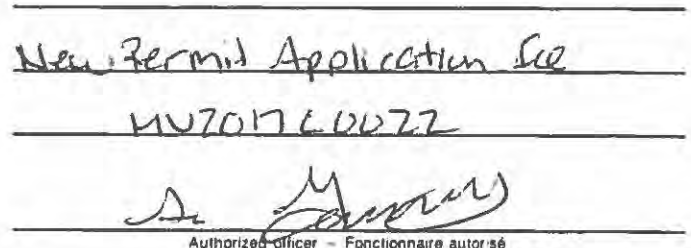 New Permit Application fee
MV2017C0022
Authorized officer – Fonctionnaire autorisé